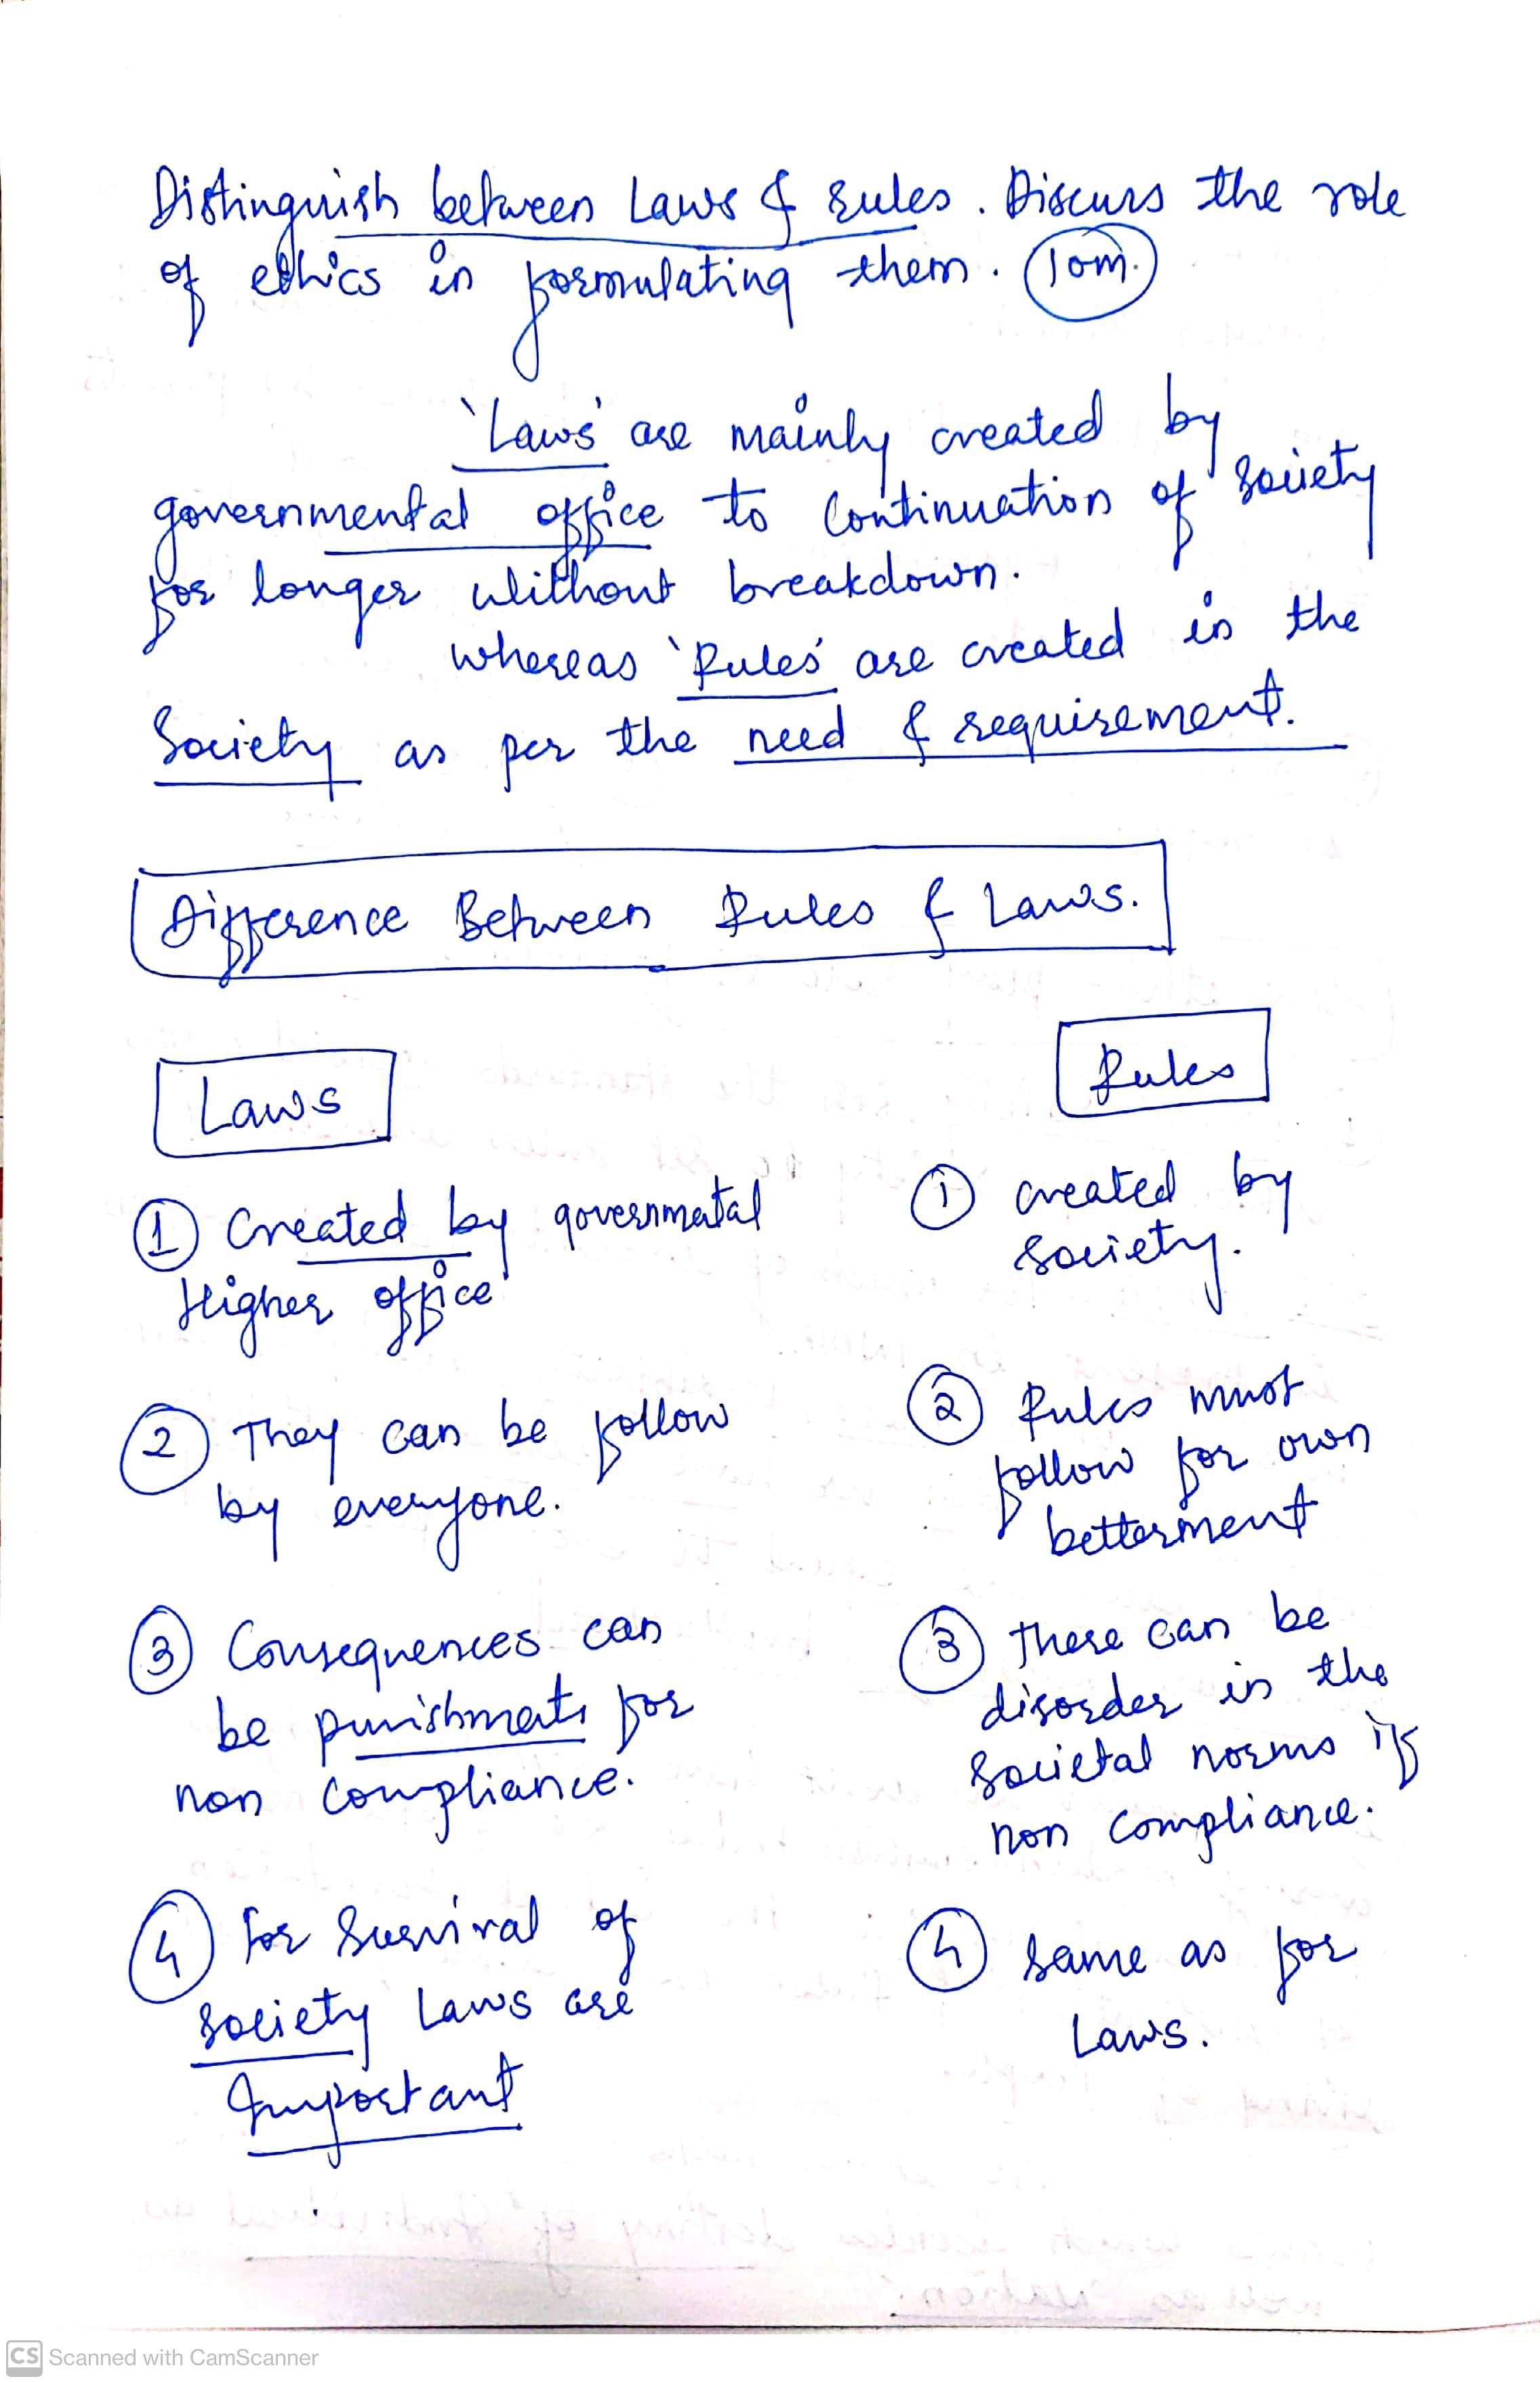 Distinguish between Laws & rules. Discuss the role
of ethics in formulating them. (10m.)
'Laws' are mainly created by
governmental office to continuation of society
for longer without breakdown.
whereas 'Rules' are created in the
Society as per the need & requirement.
Difference Between Rules & Laws.
Laws
Rules
① Created by governmatal
Higher office
① created by
society.
② They can be follow
by everyone.
② Rules must
follow for own
betterment
③ Consequences can
be punishments for
non compliance.
③ There can be
disorder in the
societal norms if
non compliance.
④ for Survival of
society Laws are
Important
④ same as for
Laws.
CS Scanned with CamScanner